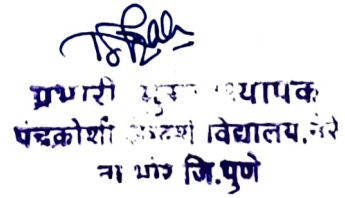 प्रभारी मुख्याध्यापक
पंचक्रोशी आदर्श विद्यालय, नेरे
ता भोर जि.पुणे